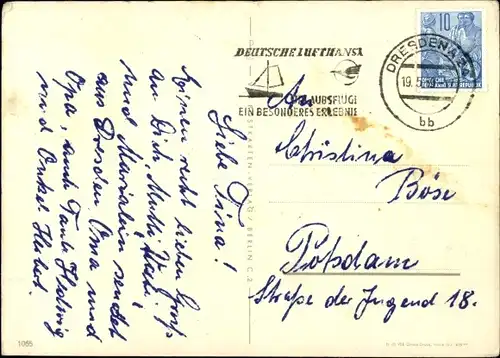 Liebe Tina!
Einen recht lieben Gruß
an Dich, Mutti,
und Mariechen sendet
aus Dresden Oma und
Opa, auch Tante Hedwig
und Onkel Herbert.
DEUTSCHE LUFTHANSA
AUSFLUG
EIN BESONDERES ERLEBNIS
DRESDEN A
19.5
bb
10
An
Christina
Böse
Potsdam
Straße der Jugend 18.
BERLIN C 2
1065